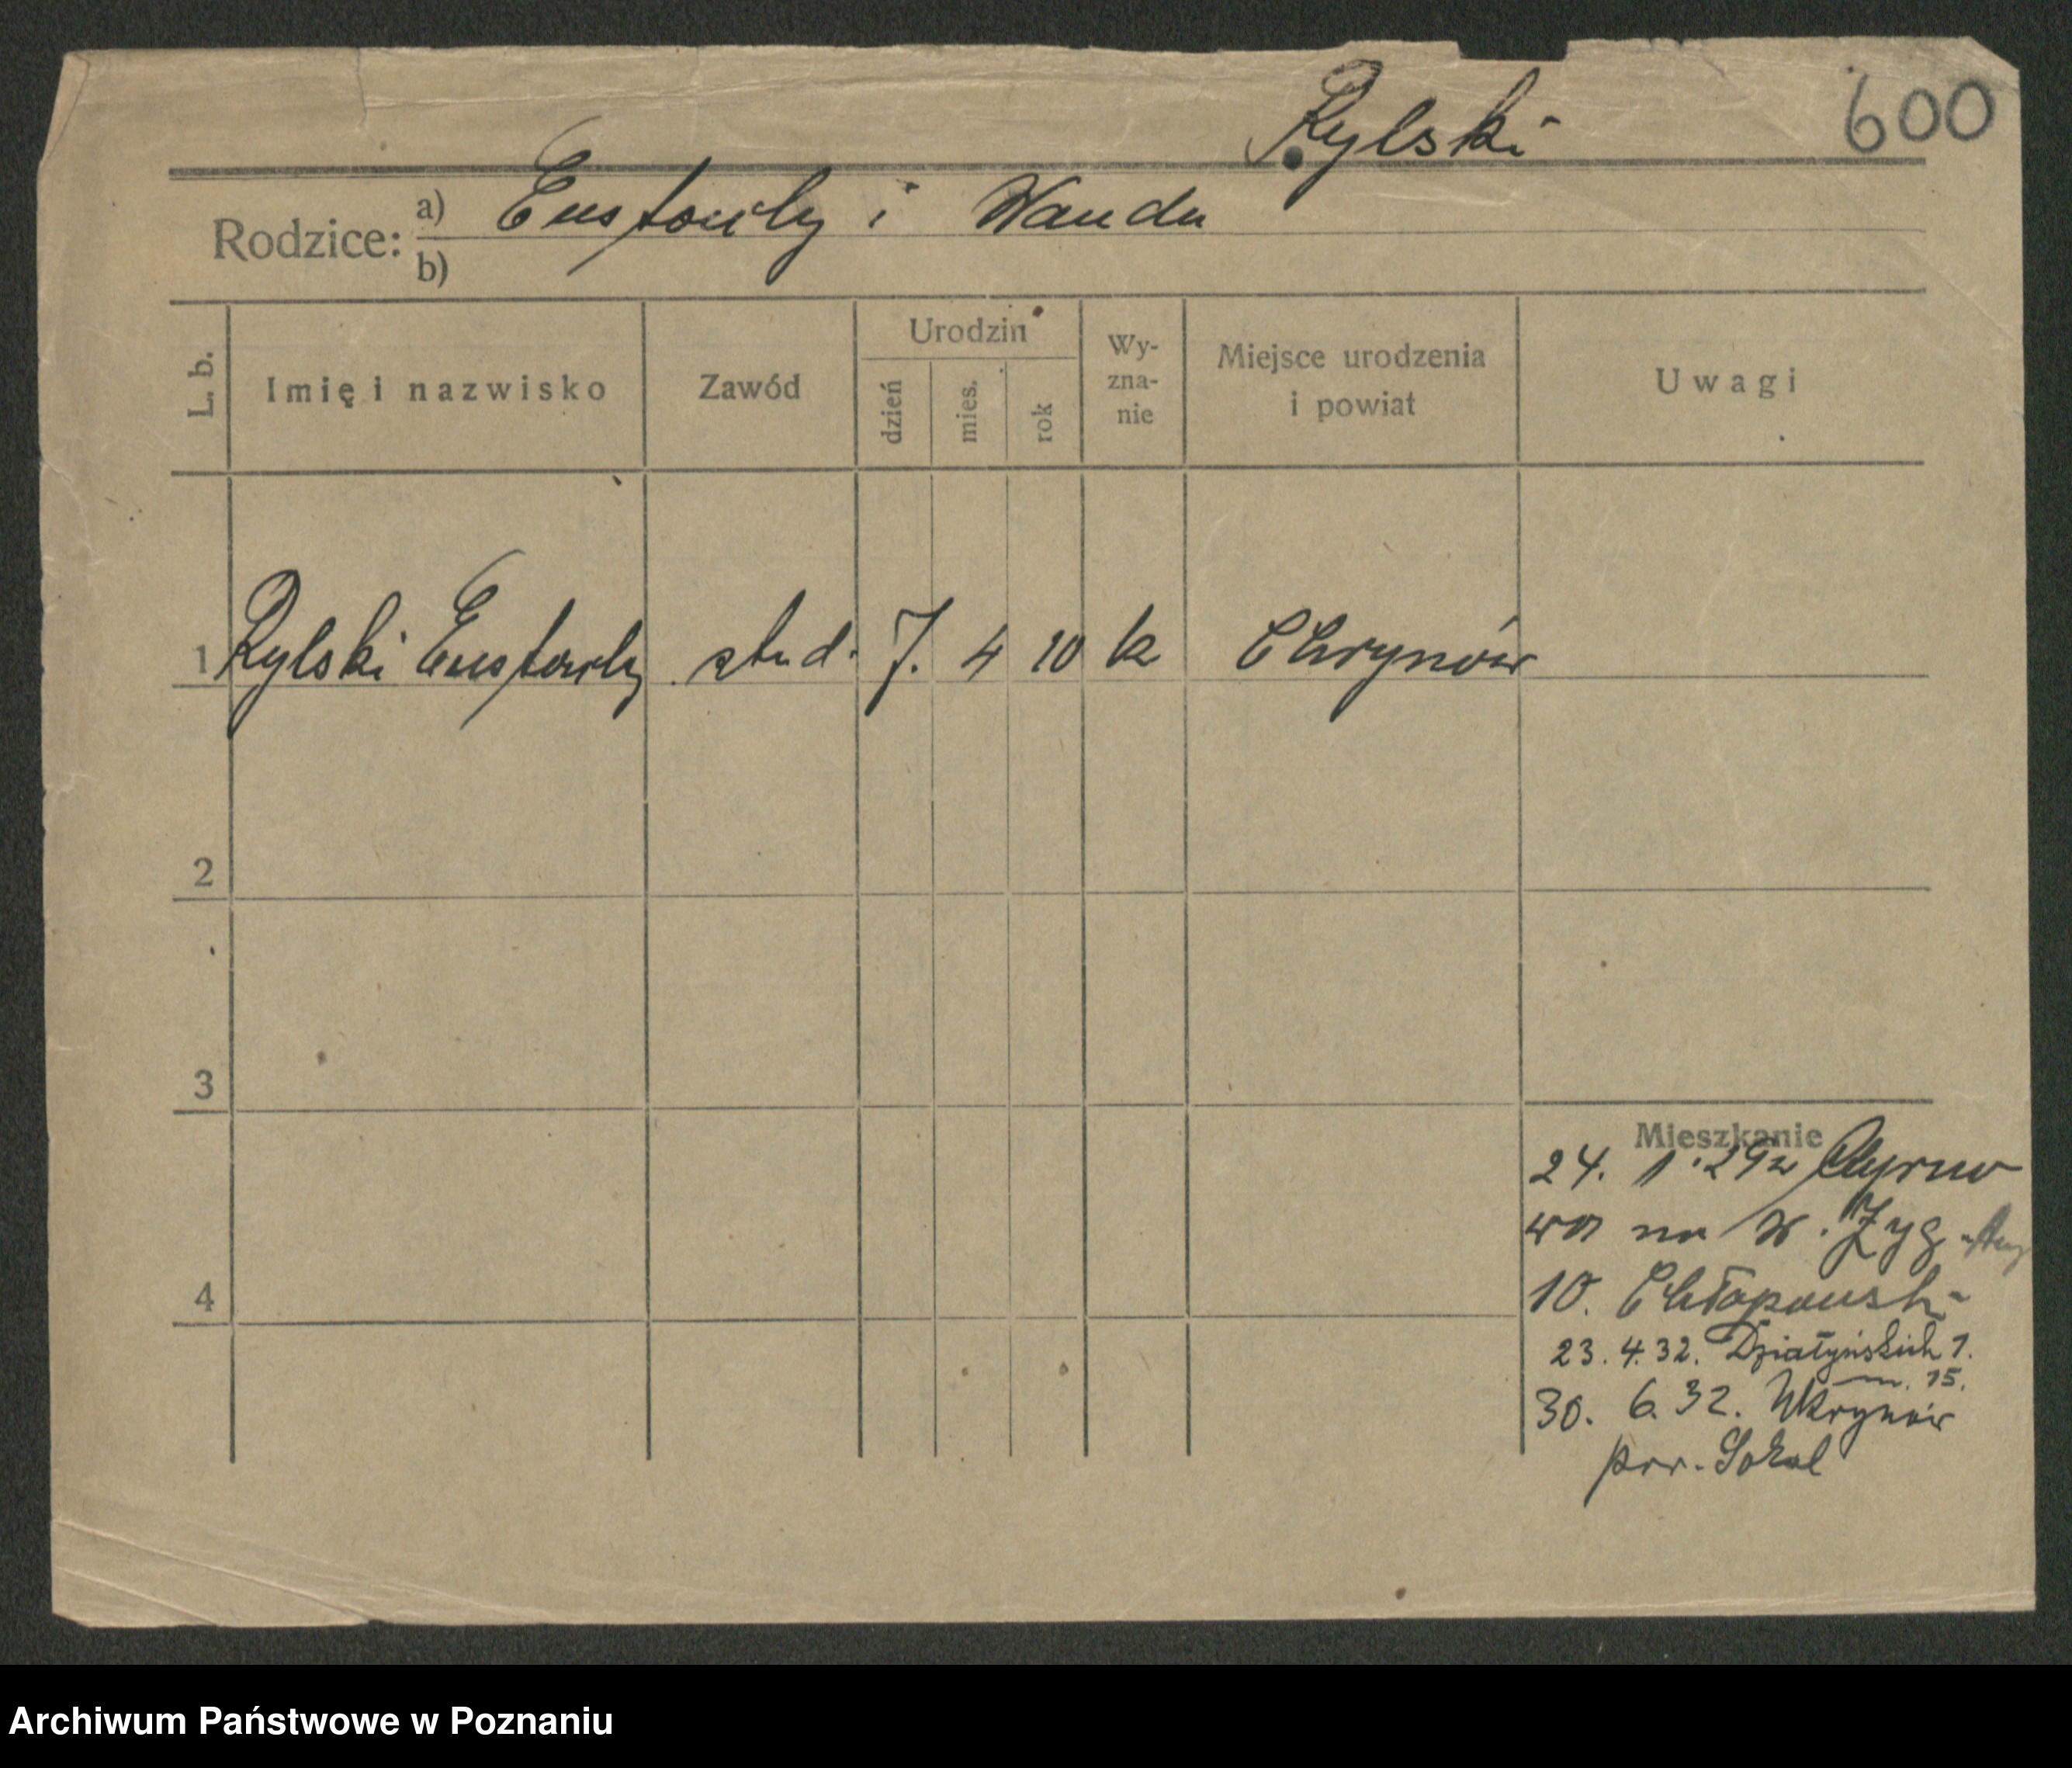 Rylski
600
Rodzice: a) Eustachy i Wanda
b)
L. b.
Imię i nazwisko
Zawód
Urodzin
dzień
mies.
rok
Wy-
zna-
nie
Miejsce urodzenia
i powiat
Uwagi
1 Rylski Eustachy stud. 7. 4 10 k Chrynów
2
3
4
Mieszkanie
24. 1. 29
na W. Zyg.
10.
23. 4. 32. Działyńskich 1.
m. 15.
30. 6. 32.
pow. Sokal
Archiwum Państwowe w Poznaniu